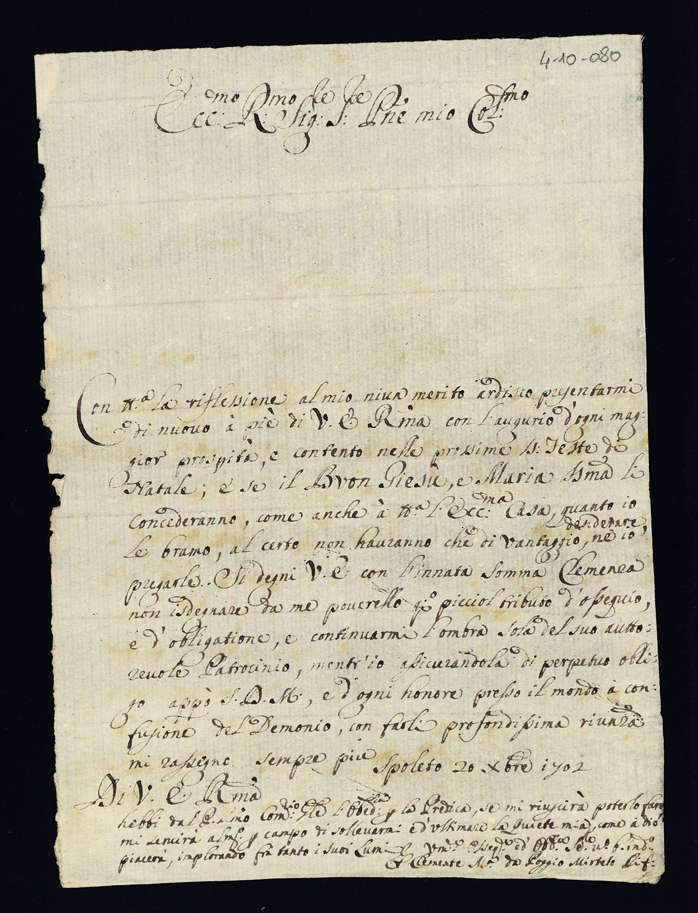 4-10-080
Ecc:mo R:mo Sig:re S:re Pñe mio Col:mo
Con tt.a la riflessione al mio niun merito ardisco presentarmi
di nuovo à piè di V. E. Rma con l'augurio d'ogni mag-
gior prospità, e contento nelle prossime SS: Feste di
Natale; e se il Bvon Giesù, e Maria SSma li
concederanno, come anche à tt.a l'Ecc:ma Casa, quanto io
desiderare
le bramo, al certo non hauranno che di vantaggio, ne io
pregarle. Si degni V. E. con l'innata somma Clemenza
non isdegnare da me poverello q.o picciol tributo d'ossequio,
e d'obligatione, e continuarmi l'ombra sola del suo autto-
revole Patrocinio, mentr'io assicurandola di perpetuo obli-
go appò S. D. M., e d'ogni honore presso il mondo à con-
fusione del Demonio, con farli profondissima riu.za
mi rassegno sempre più
Spoleto 20 Xbre 1702
Di V. E. Rma
hebbi dal P.
la Predica, se mi riuscirà poterlo fare
mi servirà campo di sollevarmi e d'ultimare la Quiete mia, come à Dio
piacerà, implorando frà tanto i suoi Lumi
Clemente M.a da Poggio Mirteto